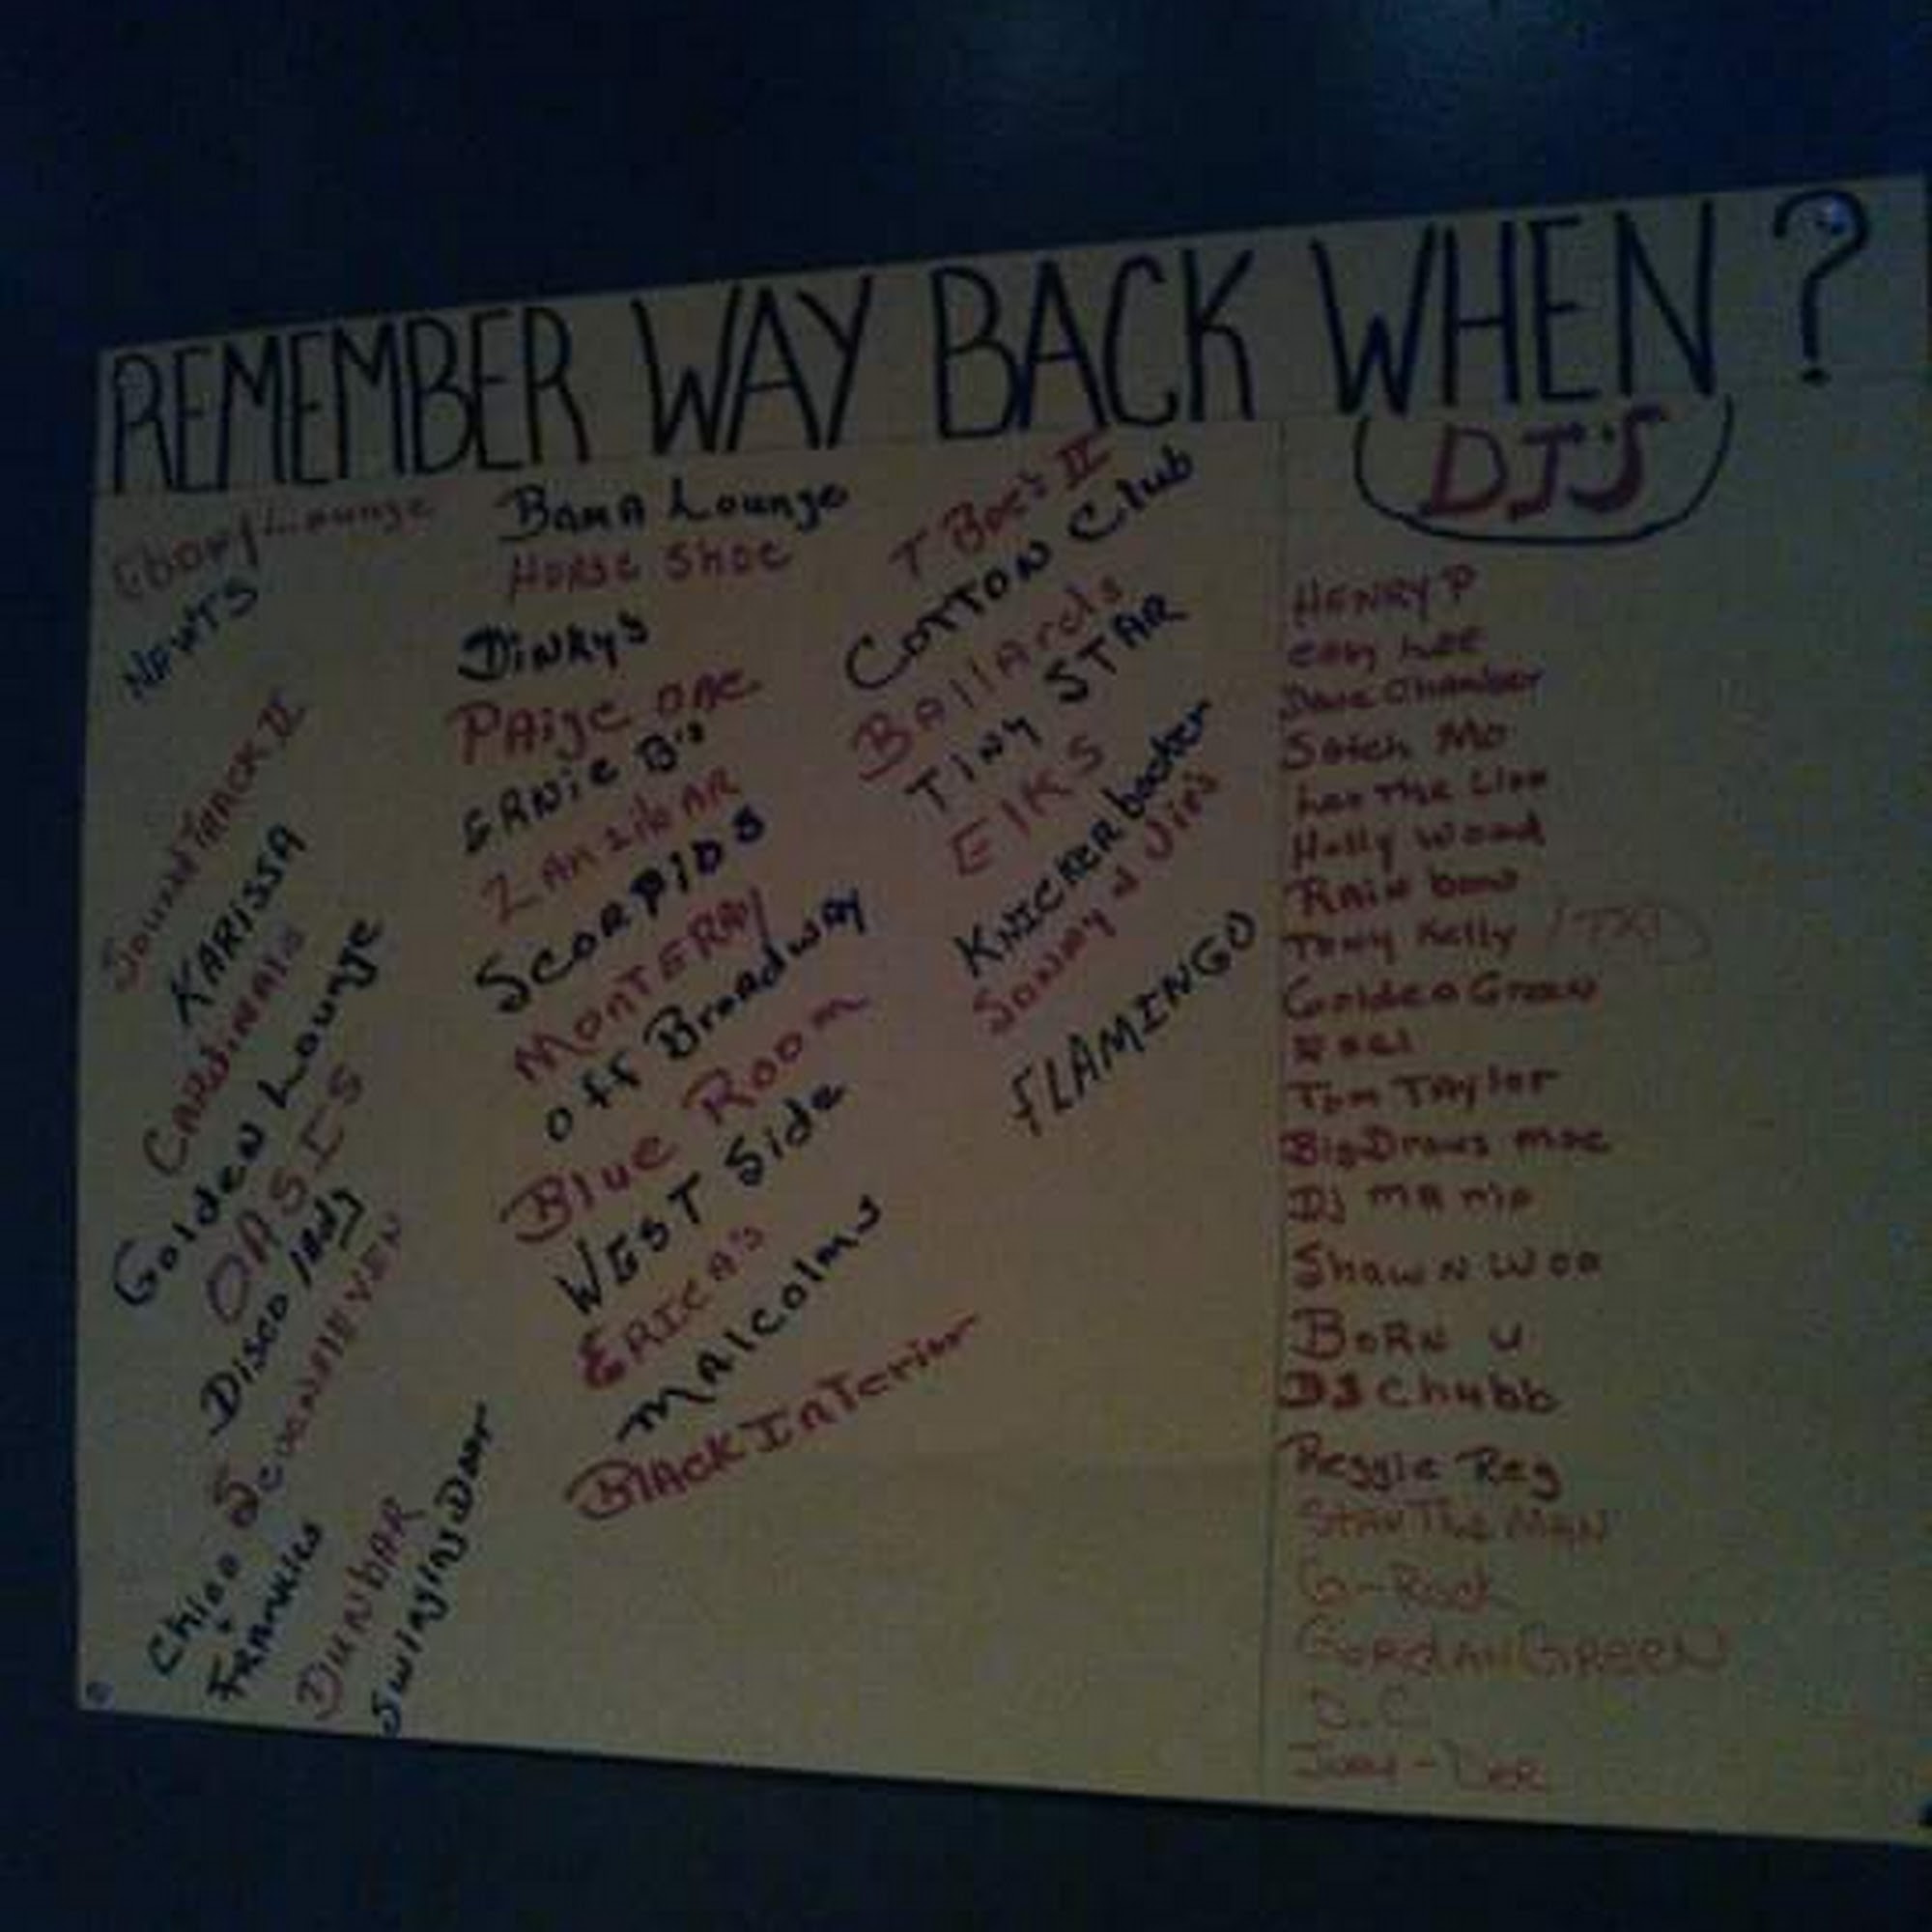 REMEMBER WAY BACK WHEN?
Ebony Lounge
NEWTS
SOUNDTRACK II
KARISSA
CARDINALS
Golden Lounge
OASIS
Disco lady
Chico &
FRANKIES
DUNbAR
Swinging Door
BAMA Lounge
HORSE SHOE
DiNKys
PAige one
ERNie B's
ZANzibAR
ScoRPIOS
MONTERAY
Off Broadway
Blue Room
WEST Side
ERICA's
MAlcolms
BlAck InTerior
T Boe's II
COTTON Club
BAllArds
TiNy STAR
ElKS
KNICKERbocker
SONNY N Jim's
FLAMINGO
DJ'S
HENRY P
Dave Chamber
Satch Mo
Leo The Lion
Holly Wood
RAiN bow
Tony Kelly
Golden Green
Noel
Tom TAylor
Big Draws Mac
DJ
Shawn Woo
BORN U
DJ Chubb
Reggie Reg
STAN The MAN
G-Rock
GORDAN GREEN
J.C.